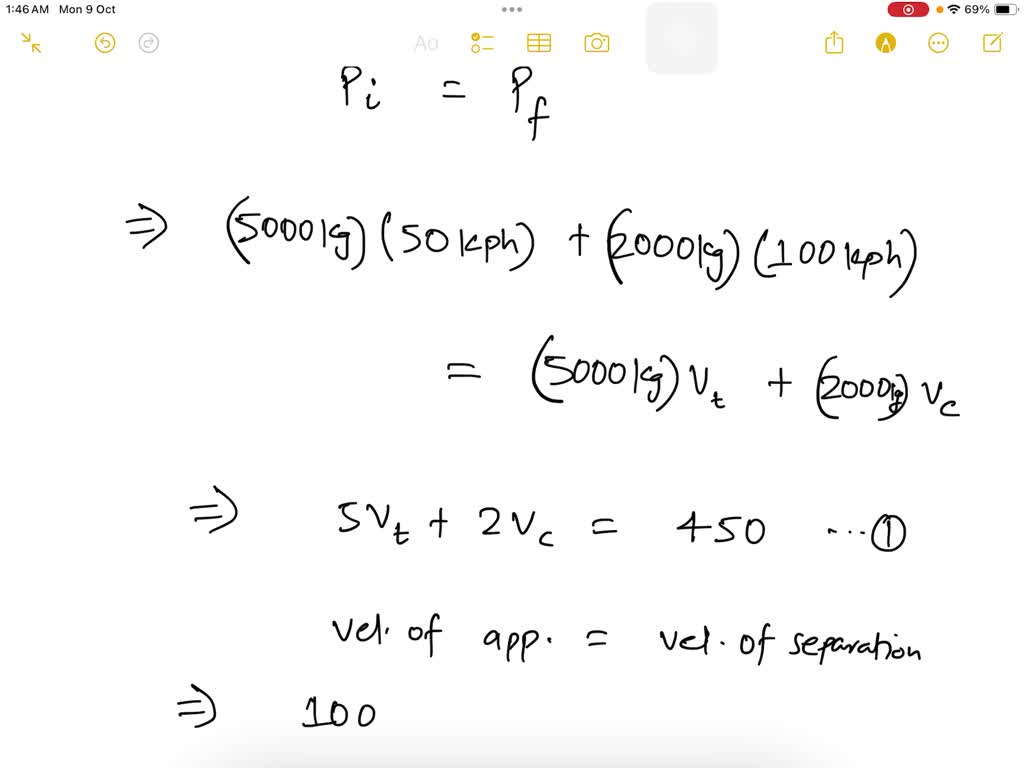 1:46 AM Mon 9 Oct 69%
Aa
Pi = Pf
⇒ (5000kg)(50kph) + (2000kg)(100kph)
= (5000kg)Vt + (2000kg)Vc
⇒ 5Vt + 2Vc = 450 ...①
vel. of app. = vel. of separation
⇒ 100